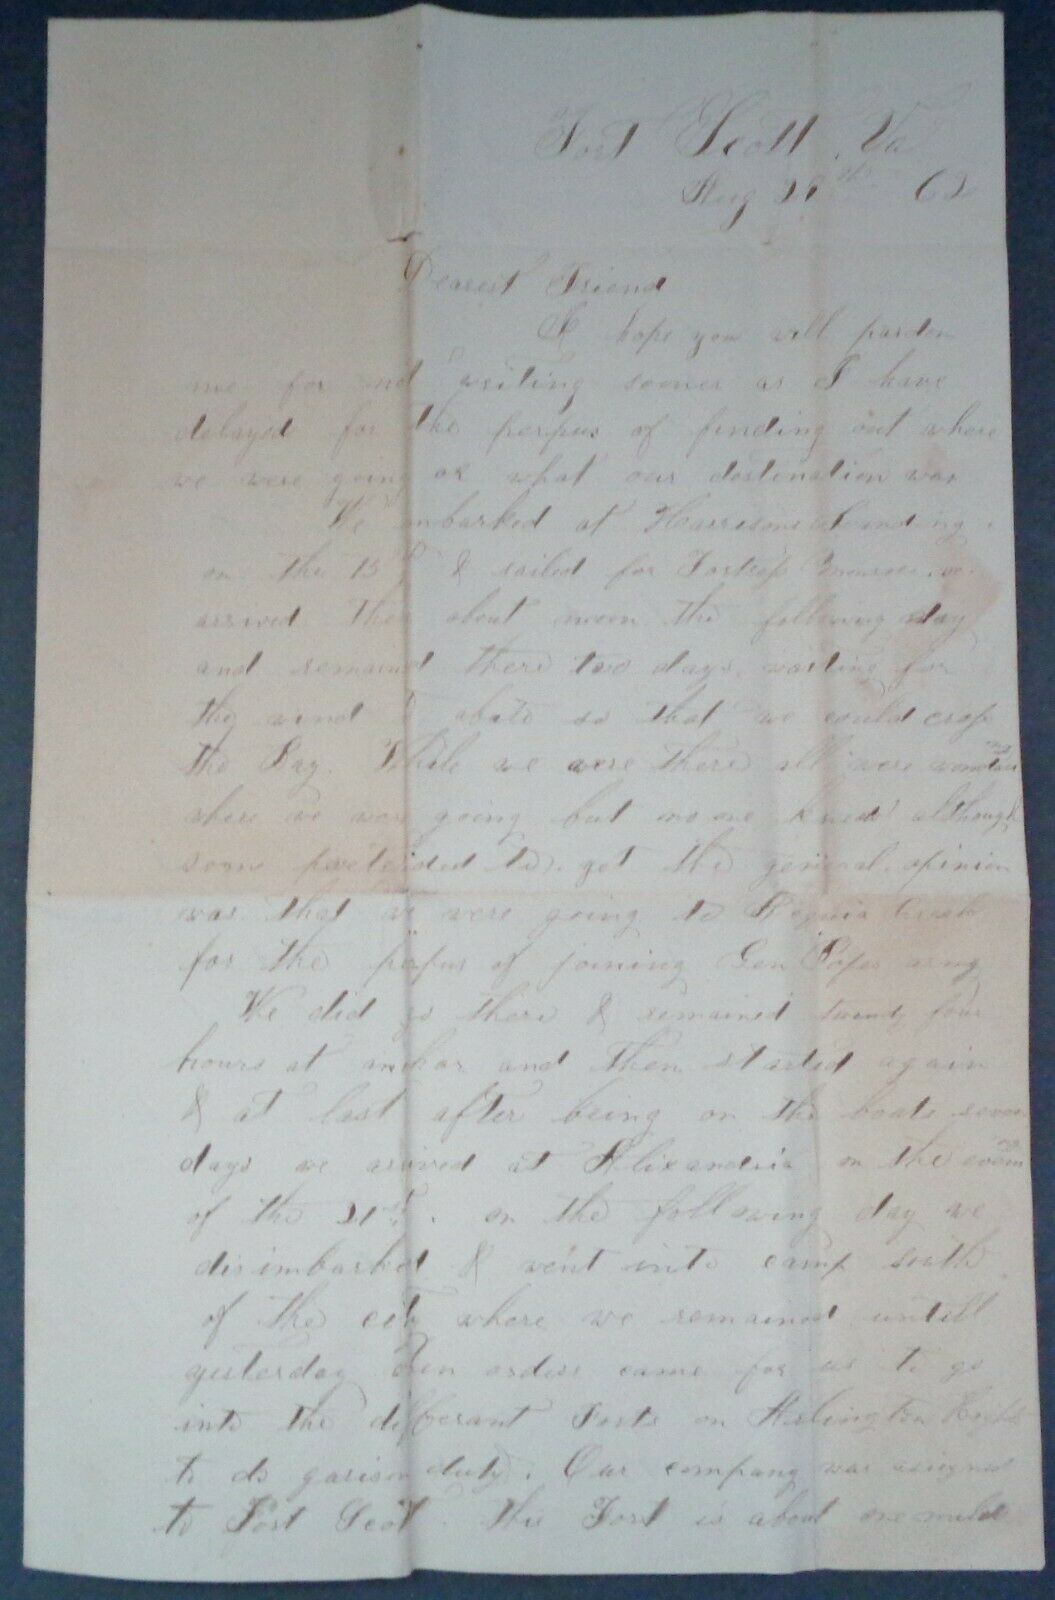 Fort Scott, Va
Aug 28th 62
Dearest Friend
I hope you will pardon
me for not writing sooner as I have
delayed for the perpus of finding out where
we were going or what our destination was
We embarked at Harrisons Landing
on the 15th & sailed for Fortress Monroe, we
arrived there about noon the following day
and remained there two days, waiting for
the wind to abate so that we could cross
the Bay. While we were there all were wondering
where we were going but no one knew although
some pretended to. yet the general opinion
was that we were going to Aquia Creek
for the perpus of joining Gen Popes army
We did go there & remained twenty four
hours at anchor and then started again
& at last after being on the boats seven
days we arrived at Alixandria on the evening
of the 21st. on the following day we
disimbarked & went into camp south
of the city where we remained untill
yesterday when orders came for us to go
into the differant Forts on Arlington Hights
to do garison duty. Our company was asigned
to Fort Scott. This Fort is about one mile